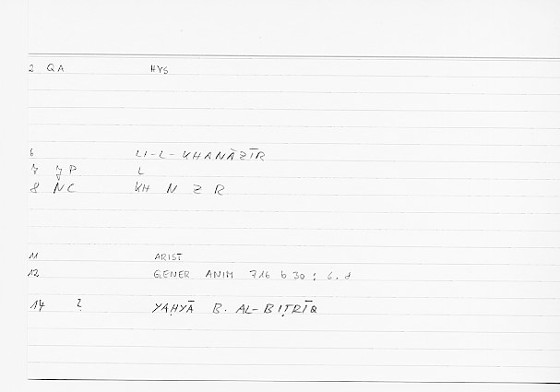 2 QA HYS
6 LI-L-KHANĀZĪR
7 yP L
8 NC KH N Z R
11 ARIST
12 GENER ANIM 716 b 30 : 6.8
14 ? YAḤYĀ B. AL-BIṬRĪQ